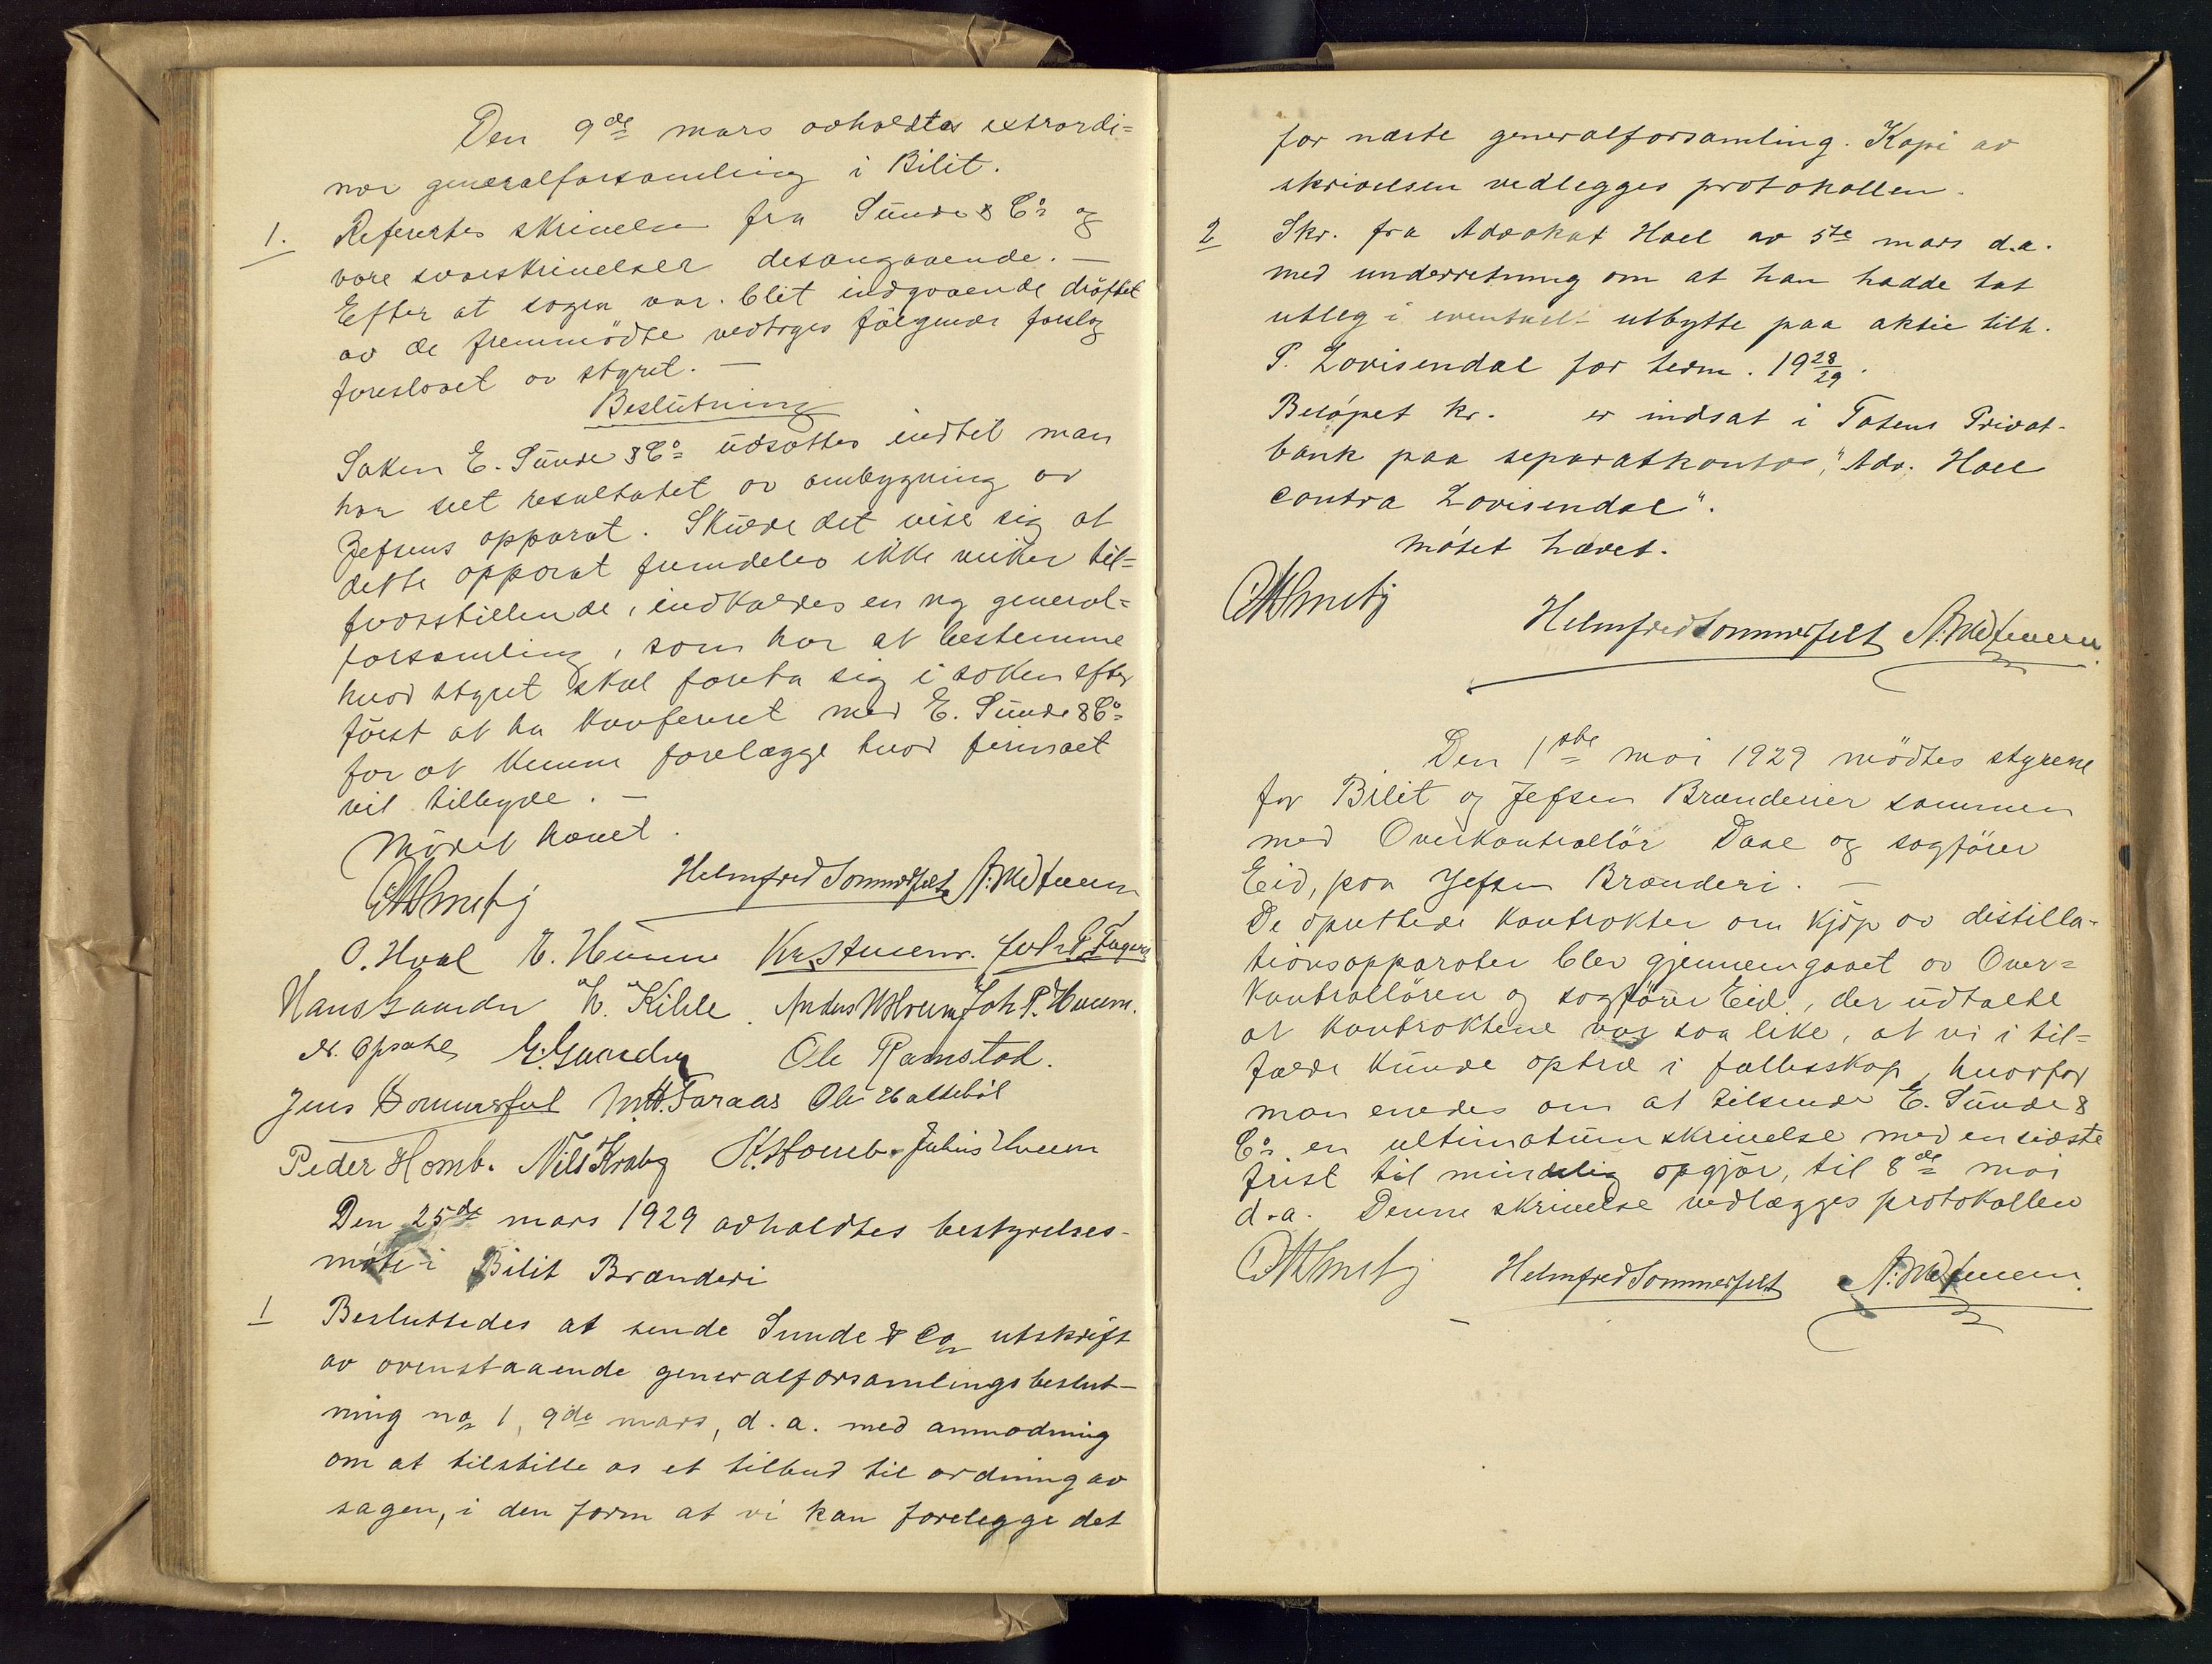 Den 9de mars avholdtes extraordi=
nær generalforsamling i Bilit.
1. Referertes skrivelse fra Sunde & Co og
vore svarskrivelser desangaaende. —
Efter at sagen var blit indgaaende drøftet
av de fremmødte vedtoges følgende forslag
foreslaaet av styret. —
Beslutning
Saken E. Sunde & Co udsættes indtil man
har set resultatet av ombygning av
Jefsens apparat. Skulde det vise sig at
dette apparat fremdeles ikke virker til=
fredsstillende, indkaldes en ny general=
forsamling, som har at bestemme
hvad styret skal foreta sig i saken efter
først at ha konferert med E. Sunde & Co
for at kunne forelægge hvad firmaet
vil tilbyde. —
Mødet hævet.
Helmfred Sommerfelt
O. Hval
Hans Gaarder E. Kihle Joh P. Hveem.
N. Opsahl G. Gaarder Ole Ramstad.
Jens Sommerfelt M. H. Faraas Ole Hatteböl
Peder Homb. Nils Kraby K. Homb. Julius Hveem
Den 25de mars 1929 avholdtes bestyrelses-
møte i Bilit Brænderi
1 Besluttedes at sende Sunde & Co utskrift
av ovenstaaende generalforsamlingsbeslut-
ning no 1, 9de mars, d.a. med anmodning
om at tilstille os et tilbud til ordning av
sagen, i den form at vi kan forelegge det
for næste generalforsamling. Kopi av
skrivelsen vedlegges protokollen.
2 Skr. fra Advokat Hoel av 5te mars d.a.
med underretning om at han hadde tat
utleg i eventuelt utbytte paa aktie tilh.
P. Lovisendal for term. 1928/29.
Beløpet kr. er indsat i Totens Privat-
bank paa separatkonto, "Adv. Hoel
contra Lovisendal".
møtet hævet.
Helmfred Sommerfelt
Den 1ste mai 1929 mødtes styrene
for Bilit og Jefsen Brænderier sammen
med Overkontrollør Dahl og sagfører
Eid, paa Jefsen Brænderi. —
De oprettede kontrakter om kjøp av distilla-
tionsapparater blev gjennemgaaet av Over=
kontrolløren og sagfører Eid, der udtalte
at kontraktene var saa like, at vi i til=
fælde kunde optræ i fællesskap, hvorfor
man enedes om at tilsende E. Sunde &
Co en ultimatum skrivelse med en sidste
frist til mindelig opgjør, til 8de mai
d.a. Denne skrivelse vedlægges protokollen
Helmfred Sommerfelt